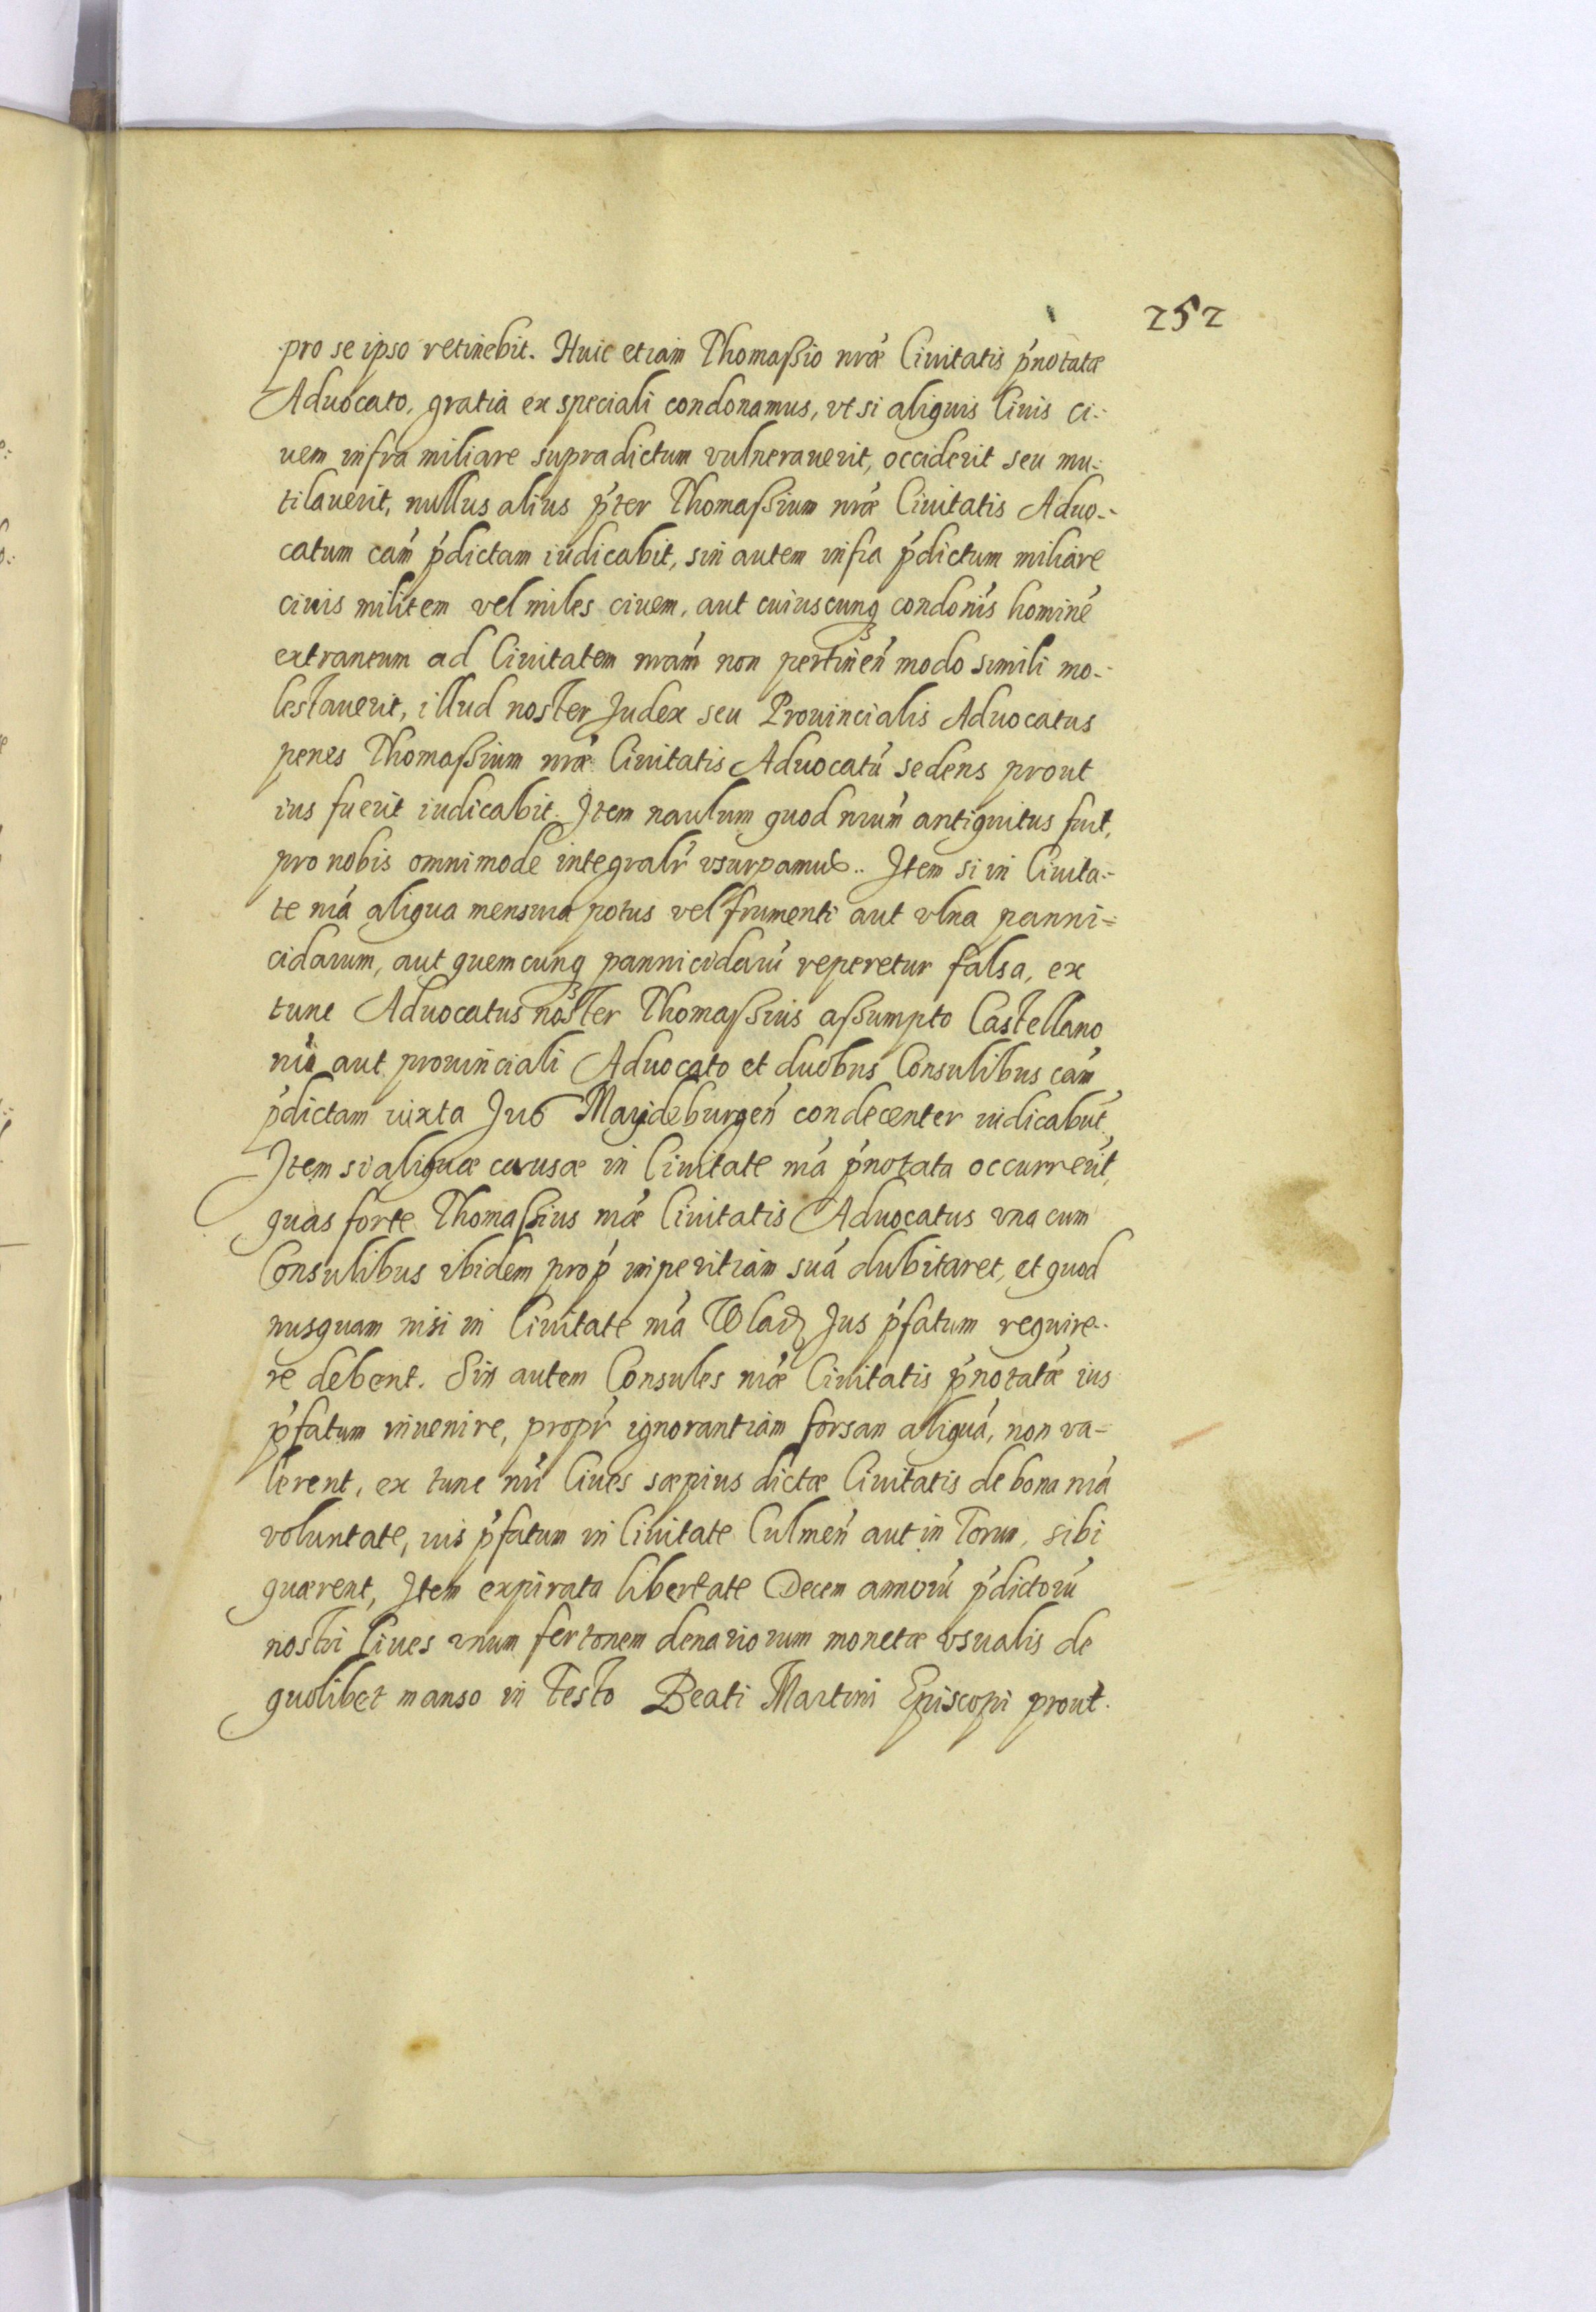 252
pro se ipso retinebit. Huic etiam Thomaßio nrǽ Ciuitatis p̓notatæ
Aduocato, gratia ex speciali condonamus, vt si aliquis Ciuis ci-
uem infra miliare supradictum vulnerauerit, occiderit seu mu-
tilauerit, nullus alius p̓ter Thomaßium nrǽ Ciuitatis Aduo-
catum cam̓ p̓dictam iudicabit, sin autem infra p̓dictum miliare
ciuis militem vel miles ciuem, aut cuiuscunqꝫ condonis̓ hominé
extraneum ad Ciuitatem nram̓ non pertinen̓ modo simili mo-
lestauerit, illud noster Judex seu Prouincialis Aduocatus
penes Thomaßium nrǽ Ciuitatis Aduocatú sedens prout
ius fuerit iudicabit. Item naulum quod nrum̓ antiquitus fuit,
pro nobis omnimode integralr̓ vsurpamus.. Item si in Ciuita-
te nrá aliqua mensura potus vel frumenti aut vlna panni-
cidarum, aut quemcunqꝫ pannicidarú reperetur falsa, ex
tunc Aduocatus noster Thomaßius aßumpto Castellano
nró aut prouinciali Aduocato et duobus Consulibus cam̓
p̓dictam iuxta Jus Maydeburgen̓ condecenter iudicabút.
Item si aliquæ causæ in Ciuitate nrá p̓notata occurrerit̓,
quas forte Thomaßius nrǽ Ciuitatis Aduocatus vna cum
Consulibus ibidem prop̓ imperitiam suá dubitaret, et quod
nusquam nisi in Ciuitate nrá Wladꝫ Jus p̓fatum require-
re debent. Sin autem Consules nrǽ Ciuitatis p̓notatǽ ius
p̓fatum inuenire, propr̓ ignorantiam forsan aliquá, non va-
lerent, ex tunc nrí Ciues sæpius dictæ Ciuitatis de bona nrá
voluntate, ius p̓fatum in Ciuitate Culmen̓ aut in Torun, sibi
quærent, Item expirata libertate Decem annorú p̓dictorú
nostri Ciues vnum fertonem denariorum monetæ vsualis de
quolibet manso in festo Beati Martini Episcopi prout.